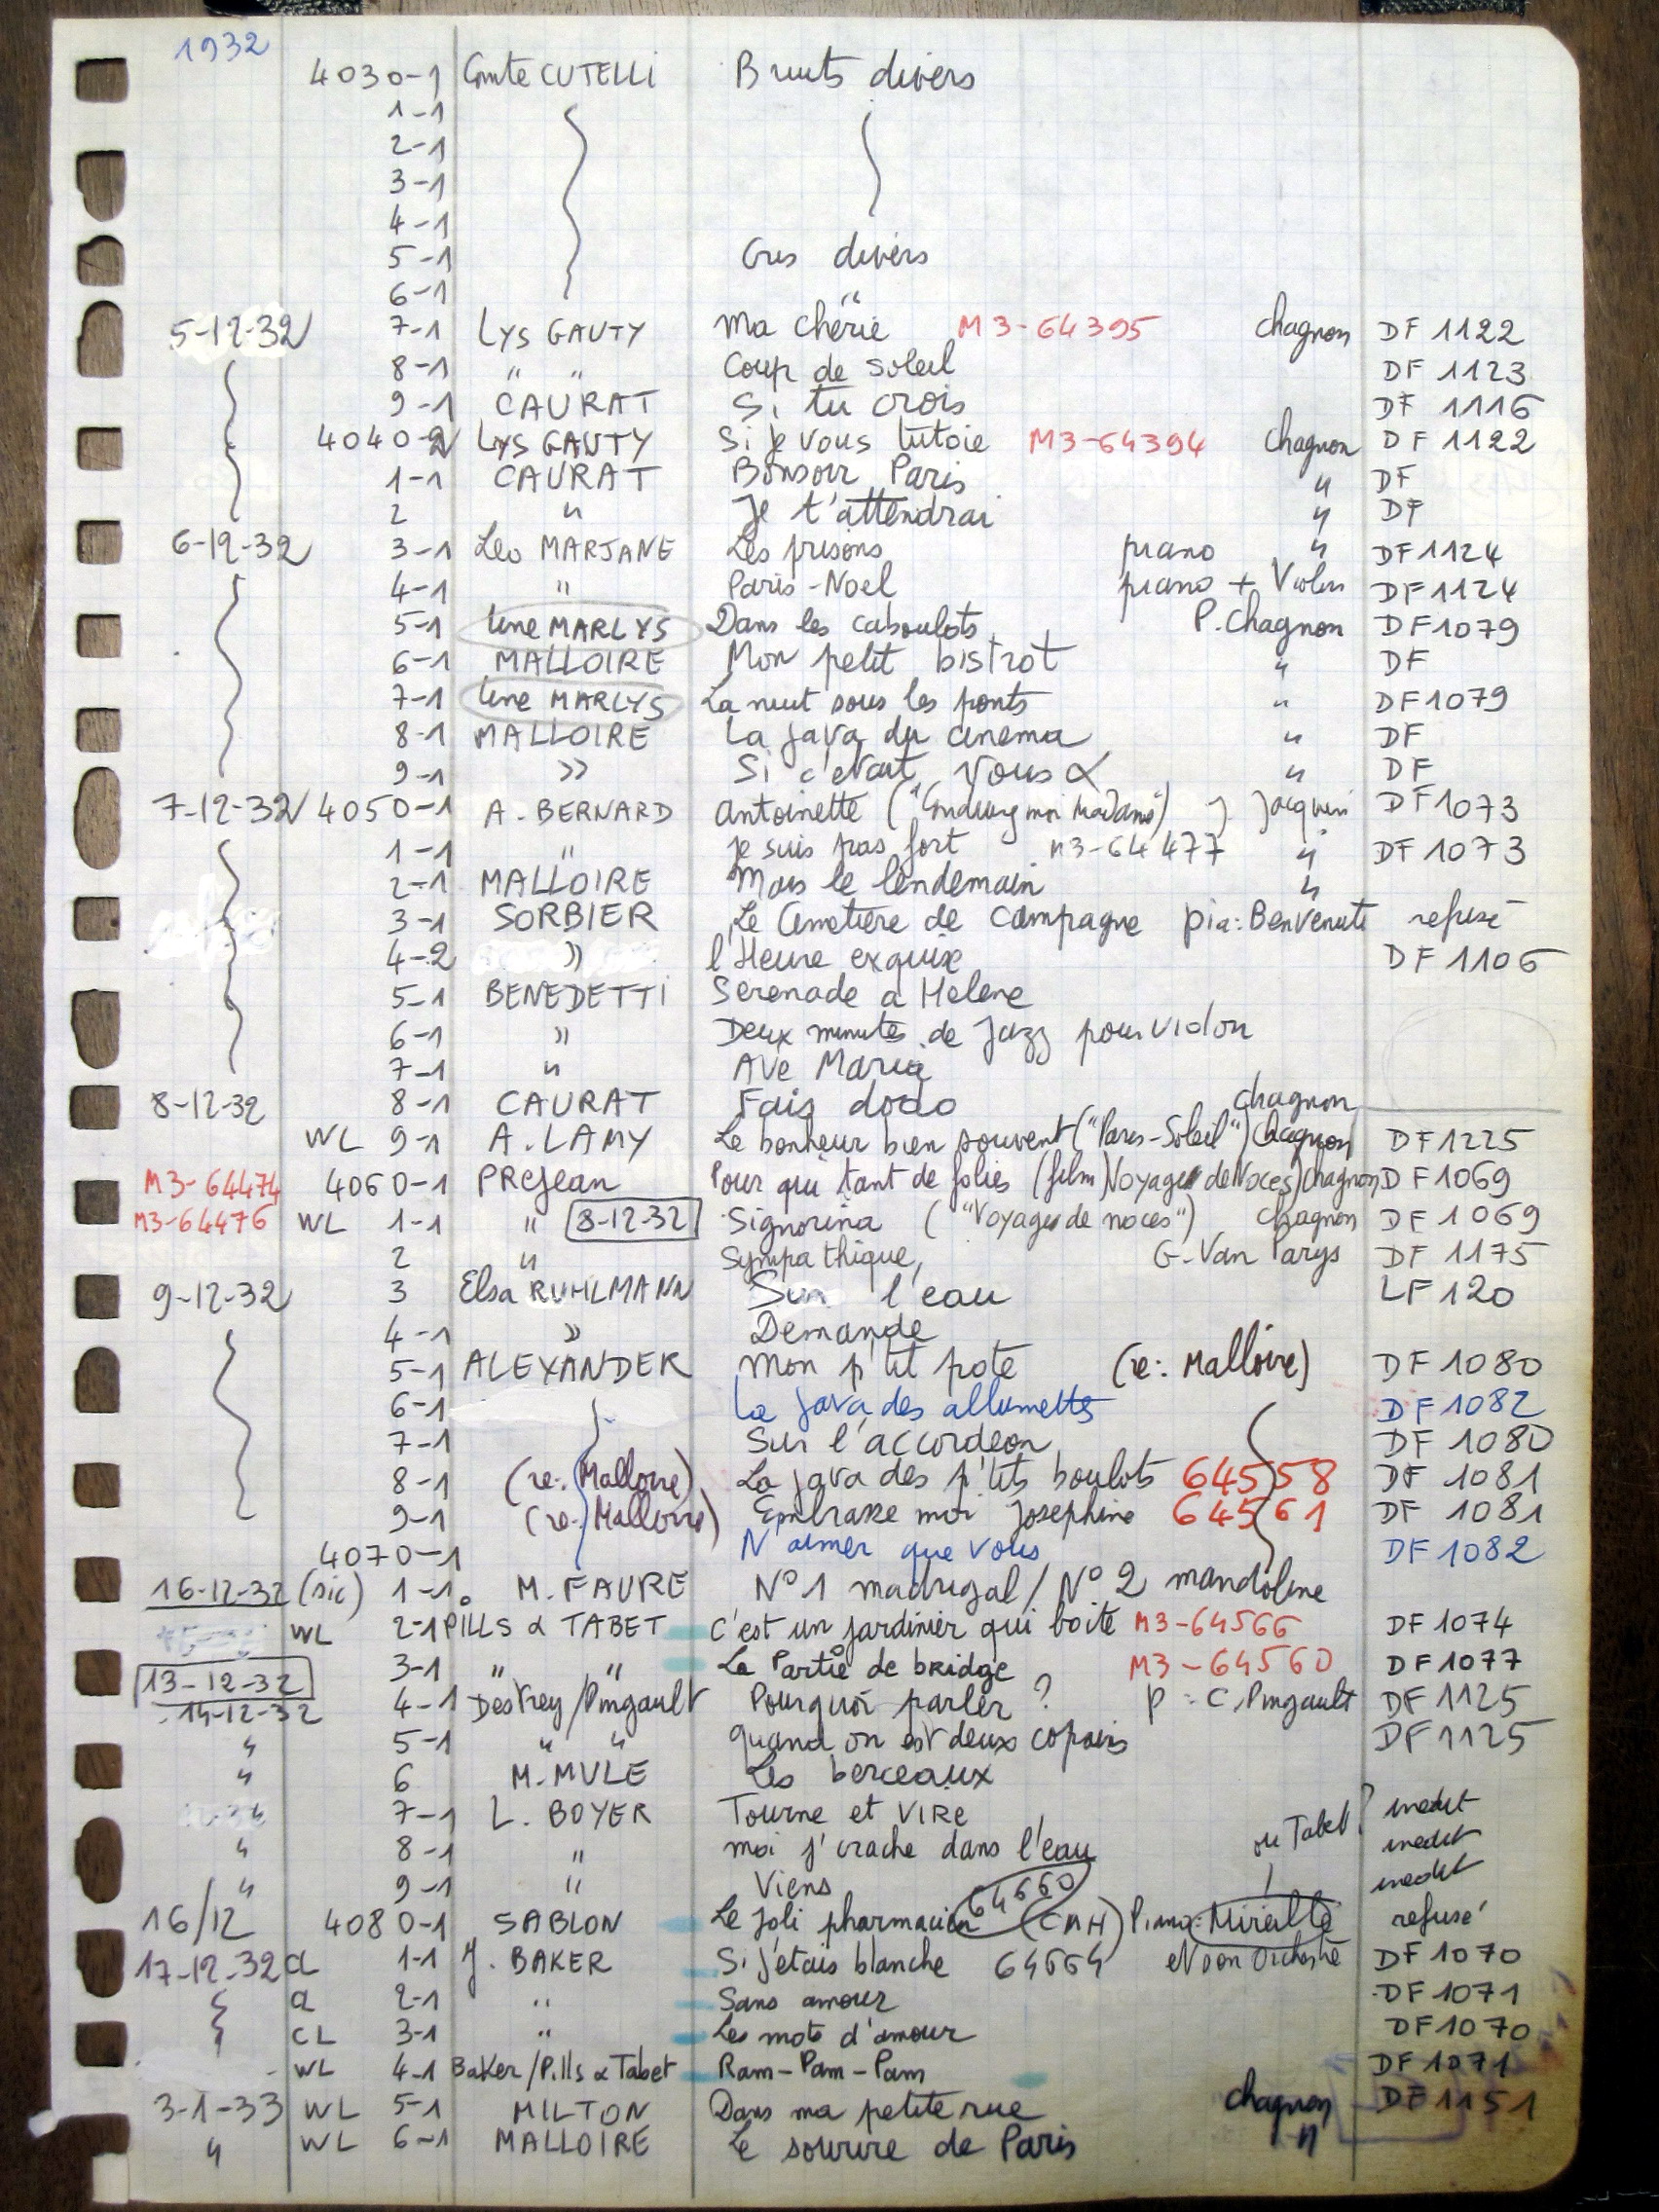 1932
4030-1 Comte CUTELLI Bruits divers
1-1
2-1
3-1
4-1
5-1 Cris divers
6-1 "
5-12-32 7-1 LYS GAUTY Ma cherie M3-64395 Chagnon DF 1122
8-1 " " Coup de soleil DF 1123
9-1 CAURAT Si tu crois DF 1116
4040-2 LYS GAUTY Si je vous tutoie M3-64394 Chagnon DF 1122
1-1 CAURAT Bonsoir Paris " DF
2 " Je t'attendrai " DF
6-12-32 3-1 Leo MARJANE Les prisons piano " DF1124
4-1 " Paris-Noel piano + Violon DF1124
5-1 Line MARLYS Dans les caboulots P. Chagnon DF1079
6-1 MALLOIRE Mon petit bistrot " DF
7-1 Line MARLYS La nuit sous les ponts " DF1079
8-1 MALLOIRE La java du cinema " DF
9-1 " Si c'etait vous " DF
7-12-32 4050-1 A. BERNARD Antoinette ( moi Madame") J Jacquin DF1073
1-1 " Je suis pas fort M3-64477 " DF 1073
2-1 MALLOIRE Mais le lendemain "
3-1 SORBIER Le Cimetière de campagne pia: Benvenuti refusé
4-2 " l'Heure exquise DF 1106
5-1 BENEDETTI Serenade a Helene
6-1 " Deux minutes de Jazz pour violon
7-1 " AVE Maria
8-12-32 8-1 CAURAT Fais dodo chagnon
WL 9-1 A. LAMY Le bonheur bien souvent ("Paris-Soleil") Chagnon DF1225
M3-64474 4060-1 PREJean Pour qui tant de folies (film) Voyage de Noces) Chagnon DF1069
M3-64476 WL 1-1 " 8-12-32 Signorina ("Voyage de noces") Chagnon DF 1069
2 " Sympathique, G. Van Parys DF 1175
9-12-32 3 Elsa RUHLMANN Sur l'eau LF 120
4-1 " Demande
5-1 ALEXANDER Mon p'tit pote (re: Malloire) DF 1080
6-1 La java des allumettes DF 1082
7-1 Sur l'accordeon DF 1080
8-1 (re: Malloire) La java des p'tits boulots 64558 DF 1081
9-1 (re: Malloire) Embrasse moi Josephine 64561 DF 1081
4070-1 N'aimer que vous DF 1082
16-12-32 (sic) 1-1 M. FAURE N°1 madrigal / N°2 mandoline
WL 2-1 PILLS & TABET C'est un jardinier qui boite M3-64566 DF 1074
13-12-32 3-1 " " La Partie de bridge M3-64560 DF 1077
14-12-32 4-1 Destrey/Pingault Pourquoi parler ? p: C. Pingault DF 1125
" 5-1 " " quand on est deux copains DF 1125
" 6 M. MULE Les berceaux
7-1 L. BOYER Tourne et VIRE inedit
" 8-1 " moi j'crache dans l'eau ou Tabet? inedit
" 9-1 " Viens inedit
16/12 4080-1 SABLON Le joli pharmacien 64660 (CMH) Piano: Mireille refusé
17-12-32 CL 1-1 J. BAKER Si j'etais blanche 64664 et son Orchestre DF 1070
CL 2-1 " Sans amour DF 1071
CL 3-1 " Les mots d'amour DF1070
WL 4-1 Baker/Pills & Tabet Ram-Pam-Pam DF 1071
3-1-33 WL 5-1 MILTON Dans ma petite rue chagnon DF 1151
" WL 6-1 MALLOIRE Le sourire de Paris "